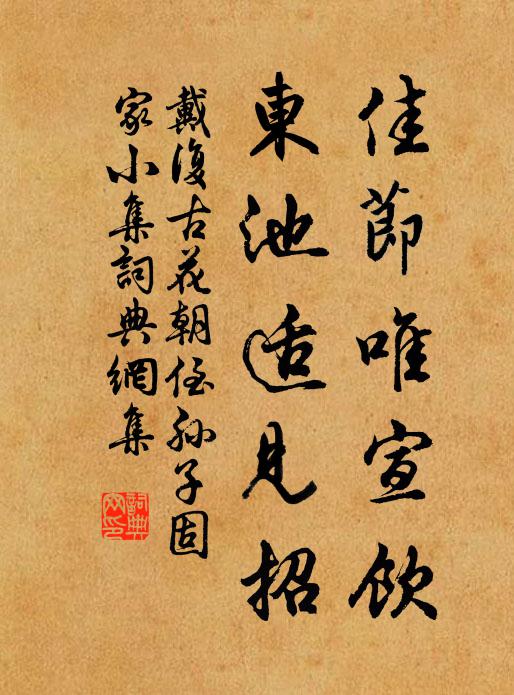 佳節唯宣飲
東池适見招
戴復古花朝侄孙子固
家小集詞典網集
詞典網印